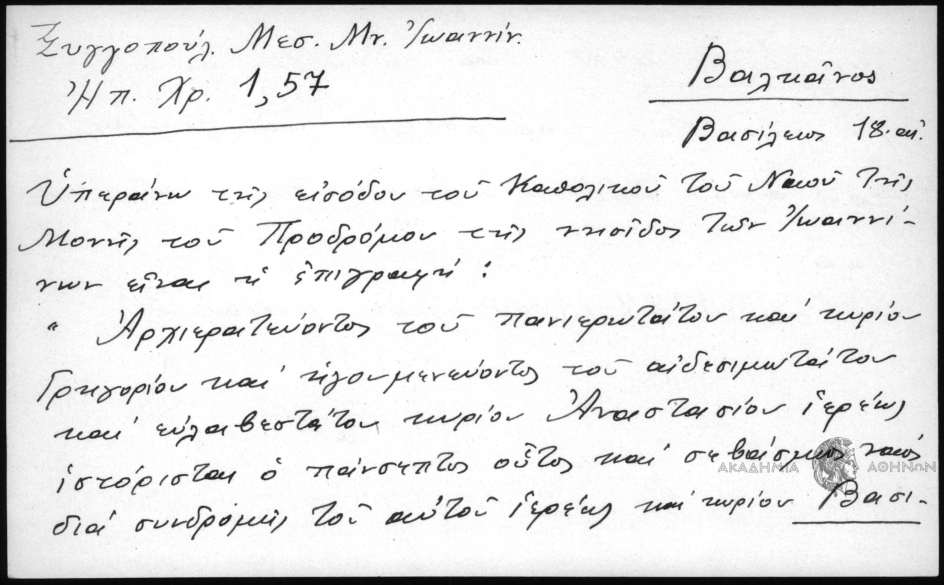 Ξυγγοπούλ. Μεσ. Μν. Ἰωαννίν.
Ἠπ. Χρ. 1,57
Βαλκᾶνος
Βασίλειος 18. αἰ.
Ὑπεράνω τῆς εἰσόδου τοῦ Καθολικοῦ τοῦ Ναοῦ τῆς
Μονῆς τοῦ Προδρόμου τῆς νησῖδος τῶν Ἰωαννί-
νων εἶναι ἡ ἐπιγραφή :
" Ἀρχιερατεύοντος τοῦ πανιερωτάτου καί κυρίου
Γρηγορίου καί ἡγουμενεύοντος τοῦ αἰδεσιμωτάτου
καί εὐλαβεστάτου κυρίου Ἀναστασίου ἱερέως
ἱστόρισται ὁ πάνσεπτος οὗτος καί σεβάσμιος ναός
διά συνδρομῆς τοῦ αὐτοῦ ἱερέως καί κυρίου Βασι-
ΑΚΑΔΗΜΙΑ ΑΘΗΝΩΝ